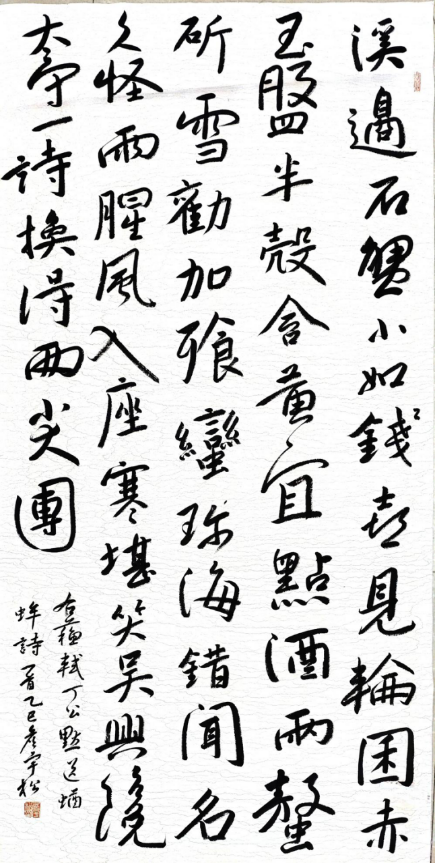 溪邊石蟹小如錢喜見輪囷赤
玉盤半殼含黃宜點酒兩螯
斫雪勸加飱蠻珍海錯聞名
久怪雨腥風入座寒堪笑吳興饞
太守一詩換得兩尖團
右蘇軾丁公默送蝤
蛑詩一首乙巳